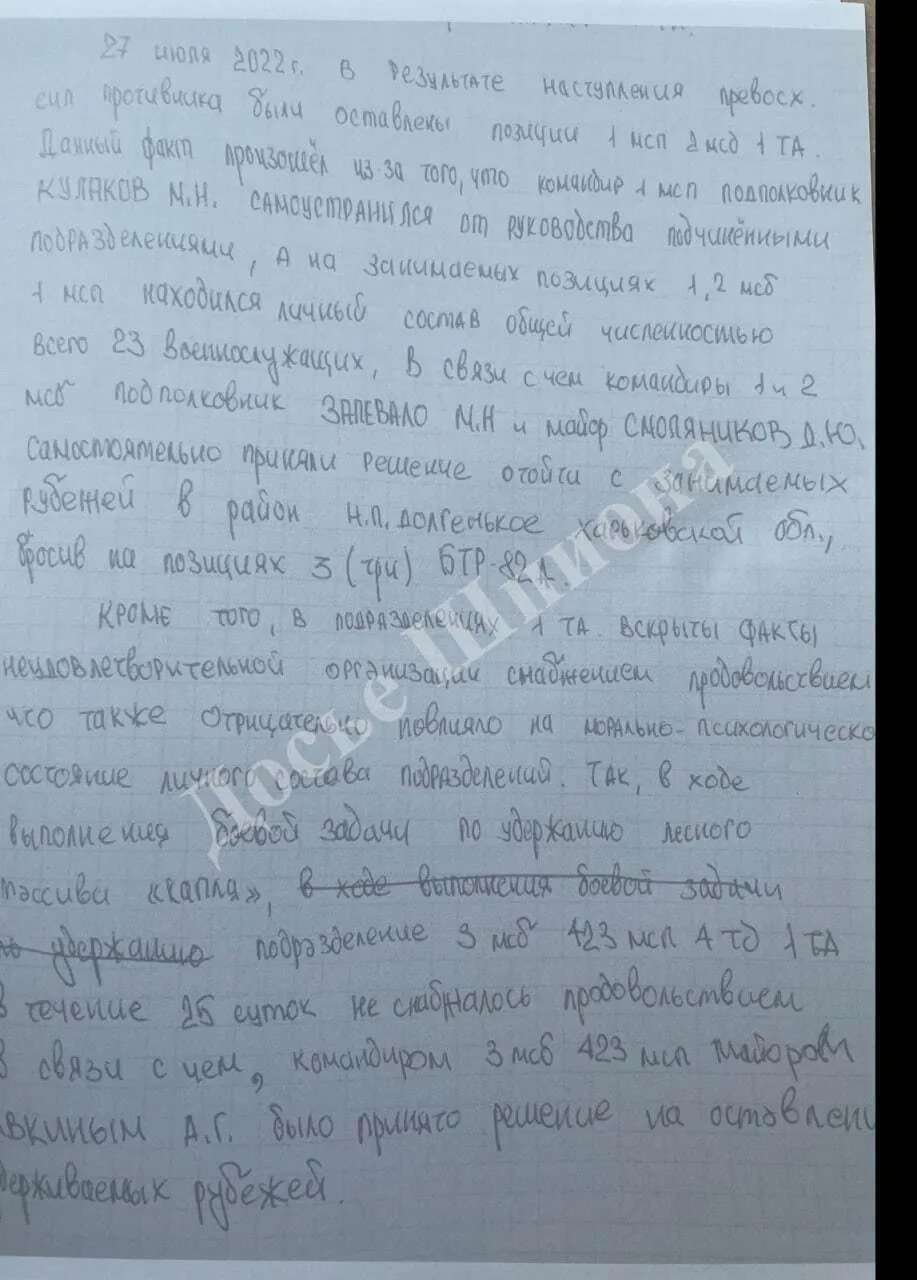 27 июля 2022г. в результате наступления превосх.
сил противника были оставлены позиции 1 мсп 2 мсд 1 ТА.
Данный факт произошёл из-за того, что командир 1 мсп подполковник
КУЛАКОВ М.Н. САМОУСТРАНИЛСЯ от руководства подчинёнными
подразделениями, А на занимаемых позициях 1,2 мсб
1 мсп находился личный состав общей численностью
всего 23 военнослужащих, В связи с чем командиры 1 и 2
мсб подполковник ЗАПЕВАЛО М.Н и майор СМОЛЯНИКОВ Д.Ю.
самостоятельно приняли решение отойти с занимаемых
рубежей в район н.п. Долгенькое Харьковской обл.,
бросив на позициях 3 (три) БТР-82А.
КРОМЕ того, в подразделениях 1 ТА. ВСКРЫТЫ ФАКТЫ
неудовлетворительной организации снабжением продовольствием
что также отрицательно повлияло на морально-психологическо
состояние личного состава подразделений. ТАК, в ходе
выполнения боевой задачи по удержанию лесного
массива «КАПЛЯ», в ходе выполнения боевой задачи
по удержанию подразделение 3 мсб 423 мсп 4 тд 1 ТА
в течение 25 суток не снабжалось продовольствием
в связи с чем, командиром 3 мсб 423 мсп майором
вкиным А.Г. было принято решение на оставлени
держиваемых рубежей.
Досье Шпиона